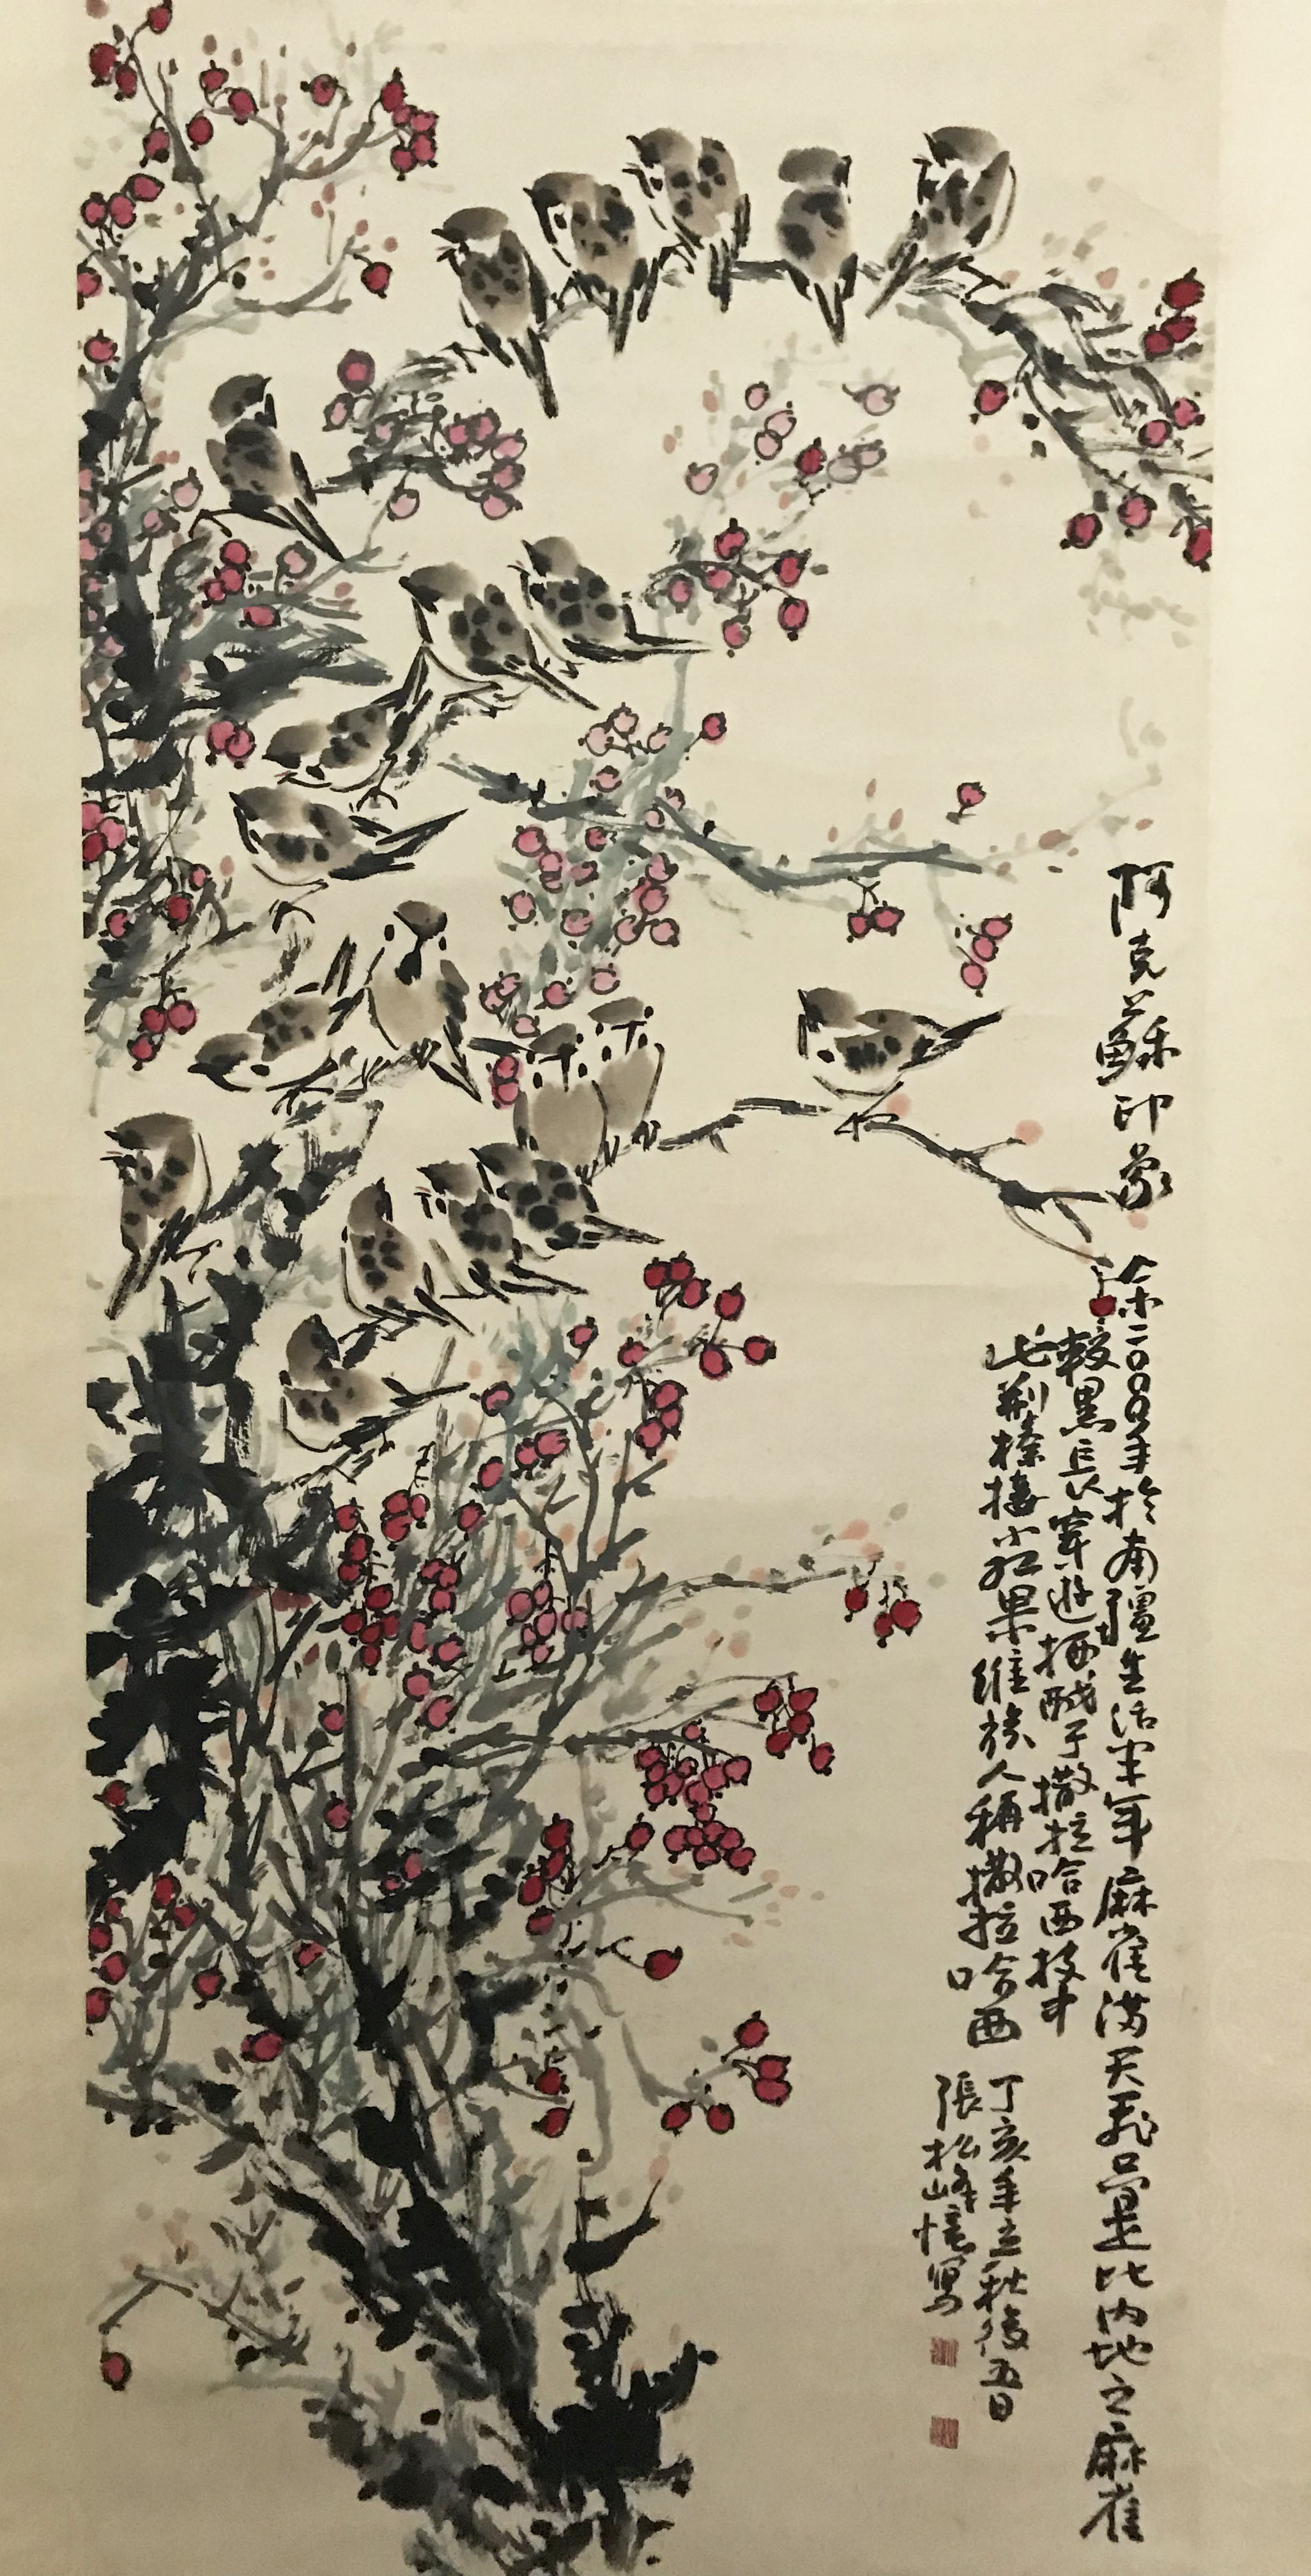 阿克蘇印象 余二〇〇〇年於南疆生活半年麻雀满天飛只是比内地之麻雀
較黑長穿遊栖戯于撒拉哈西枝中
此荆榛接小红果维族人稱撒拉哈西
丁亥年立秋後五日
張松峰憶寫